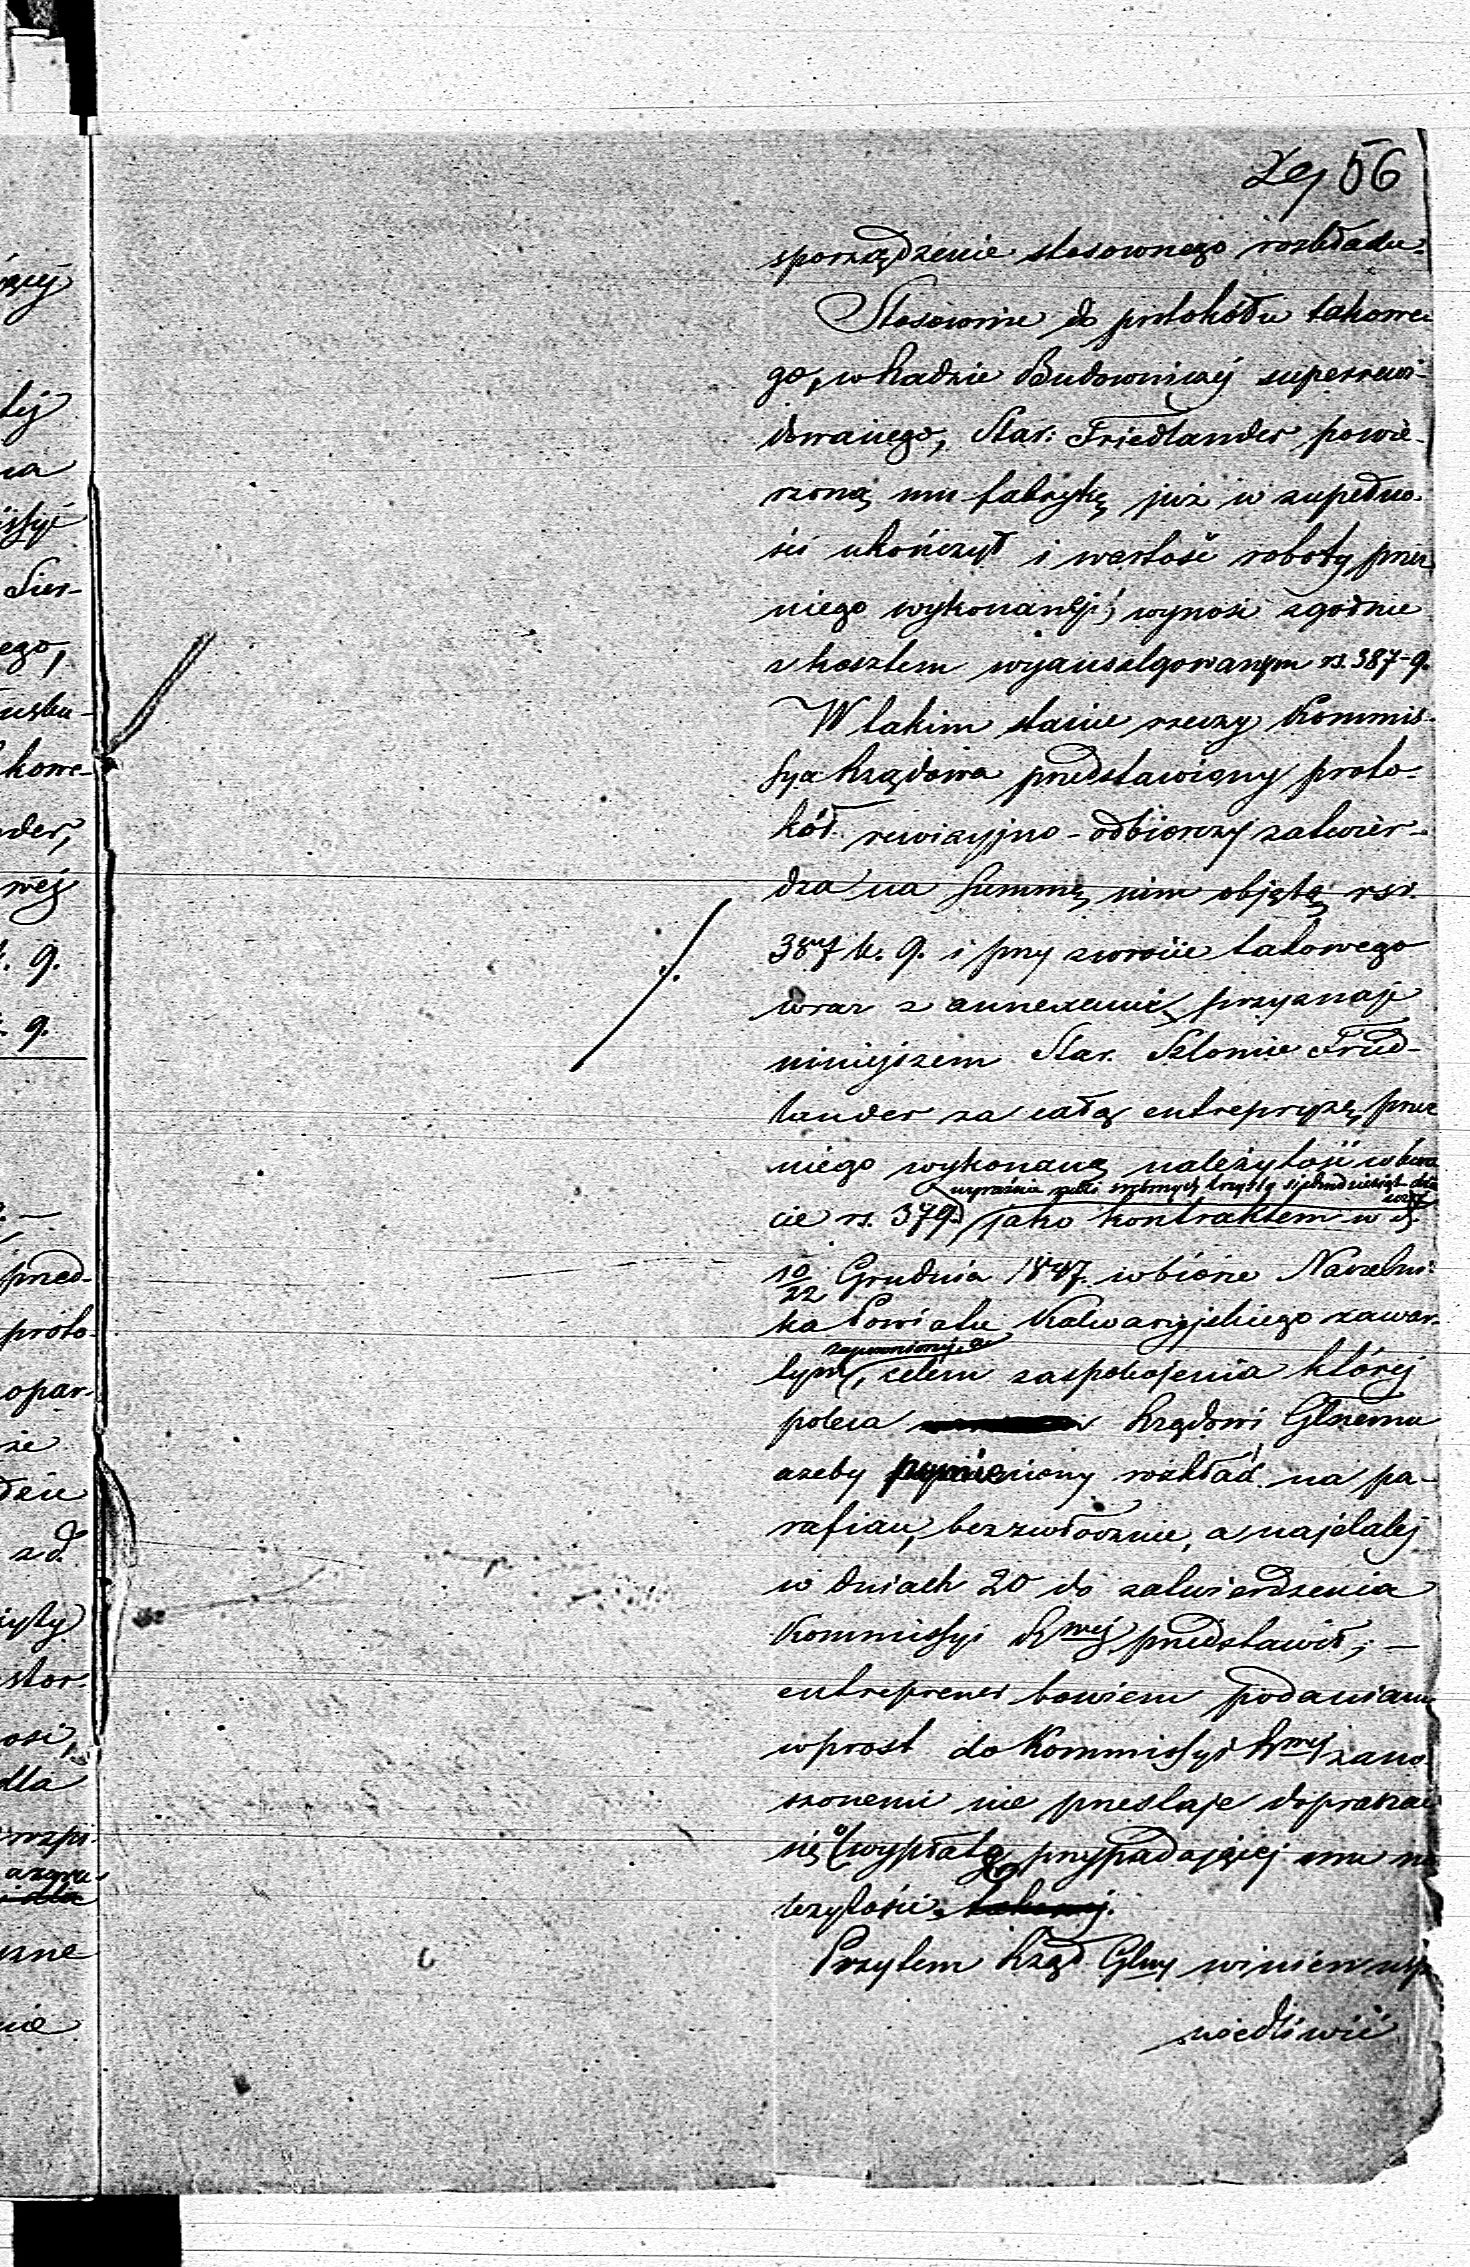 56
sporządzenie stosownego rozkładu.
Stosownie do protokółu takowe-
go, w Radzie Budowniczej superrewi-
dowanego, Star: Friedlander powie-
rzoną mu fabrykę już w zupełno-
ści ukończył i wartość roboty przez
niego wykonanej, wynosi zgodnie
z kosztem wyanszlgowanym rs. 387-9.
W takim stanie rzeczy Kommis-
sya Rządowa przedstawiony proto-
kół rewizyjno-odbiorczy zatwier-
dza na summę nim objętą rsr.
387 k. 9. i przy zwrocie takowego
wraz z annexami przyznaje
niniejszem Star. Szlomie Fried-
lander za całą entrepryzę przez
niego wykonaną należytość w kwo
wyraźnie rubli srebrnych trzysta siedmdziesiąt dzie
cie rs. 379. jako kontraktem w d.
10/22 Grudnia 1847. w biórze Naczelni-
ka Powiatu Kalwaryjskiego zawar-
zapewnioną,
tym, celem zaspokojenia której
poleca Rządowi Glnemu
ażeby rozkład na pa-
rafian, bezzwłocznie, a najdalej
w dniach 20 do zatwierdzenia
Kommissyi Rwej przedstawił; —
entreprener bowiem podaniami
wprost do Kommissyi Rwej zano-
szonemi nie przestaje dopraszać
się o wypłatę przypadającej mu na
leżytości.
Przytem Rząd Glny winien uspra
wiedliwić
ącej
tej
na
Sier-
ego,
kowe-
nder,
wej
k. 9.
k. 9.
przed-
proto-
opar-
że
dzie
z d.
stor.
ości,
dla
czne
nie